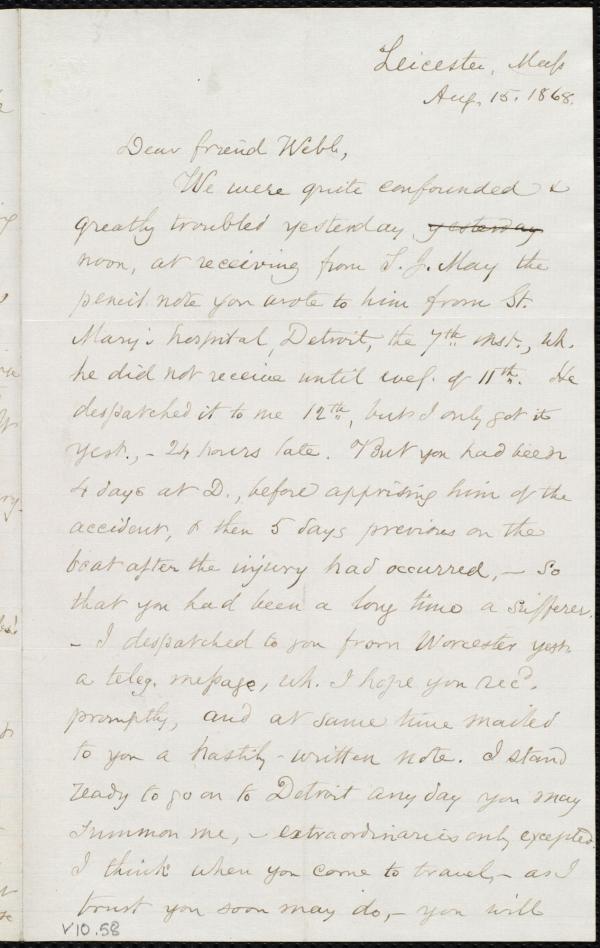 Leicester, Mass
Aug. 15. 1868.
Dear friend Webb,
We were quite confounded &
greatly troubled yesterday yesterday
noon, at receiving from S. J. May the
pencil note you wrote to him from St.
Mary's hospital, Detroit, the 7th inst., wh.
he did not receive until eveg. of 11th. He
despatched it to me 12th, but I only got it
yest., - 24 hours late. But you had been
4 days at D., before apprising him of the
accident, & then 5 days previous on the
boat after the injury had occurred, - so
that you had been a long time a sufferer.
- I despatched to you from Worcester yest.
a teleg. message, wh. I hope you recd.
promptly, and at same time mailed
to you a hastily-written note. I stand
ready to go on to Detroit any day you may
summon me, - extraordinaries only excepted.
I think when you come to travel, - as I
trust you soon may do, - you will
V10.58